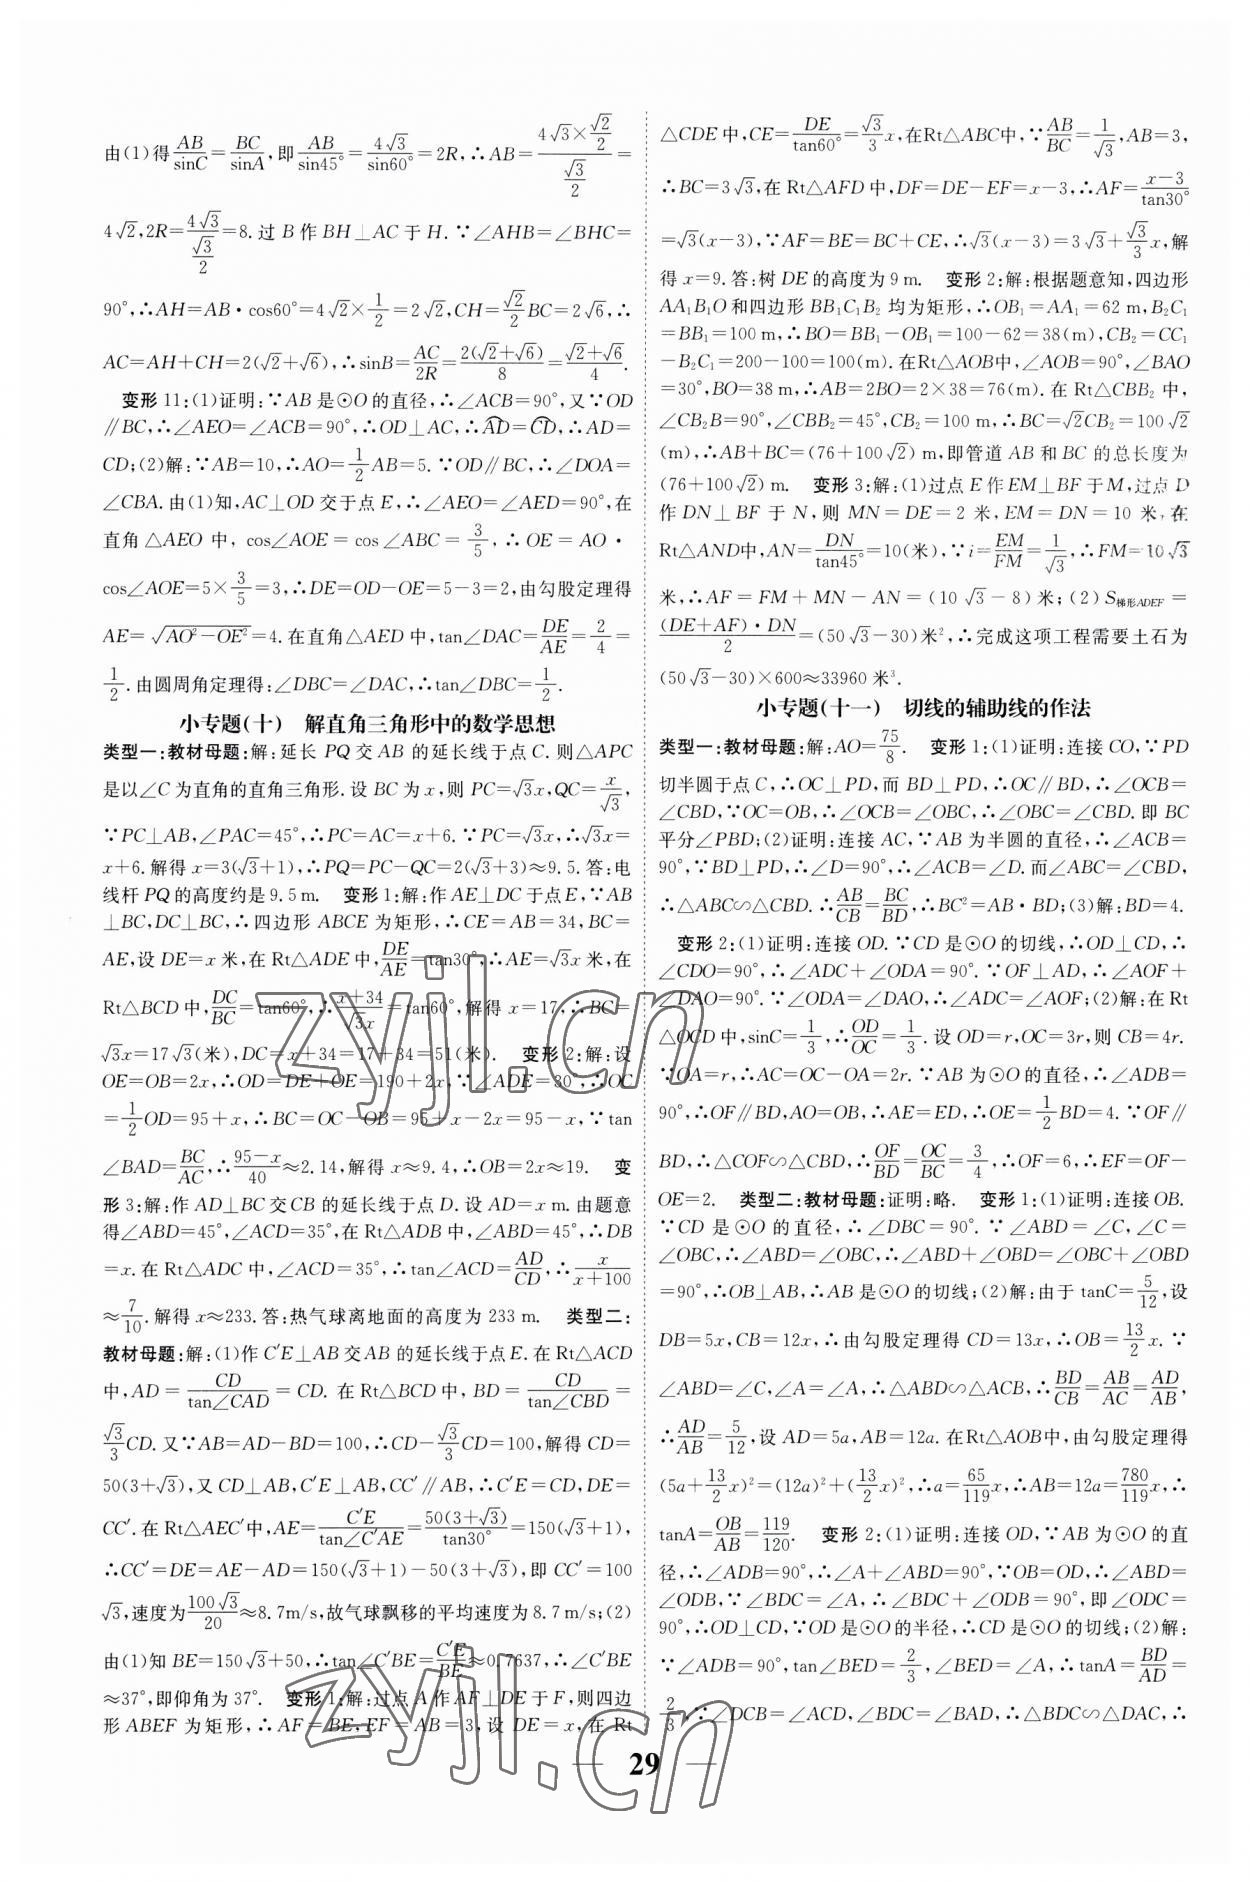 由(1)得AB/sinC=BC/sinA,即AB/sin45°=4√3/sin60°=2R,∴AB=(4√3×√2/2)/(√3/2)=
4√2,2R=4√3/(√3/2)=8.过 B 作 BH⊥AC 于 H.∵∠AHB=∠BHC=
90°,∴AH=AB·cos60°=4√2×1/2=2√2,CH=√2/2BC=2√6,∴
AC=AH+CH=2(√2+√6),∴sinB=AC/2R=2(√2+√6)/8=(√2+√6)/4.
变形 11:(1)证明:∵AB 是⊙O 的直径,∴∠ACB=90°,又∵OD
∥BC,∴∠AEO=∠ACB=90°,∴OD⊥AC,∴AD⌢=CD⌢,∴AD=
CD;(2)解:∵AB=10,∴AO=1/2AB=5.∵OD∥BC,∴∠DOA=
∠CBA.由(1)知,AC⊥OD 交于点 E,∴∠AEO=∠AED=90°,在
直角△AEO 中,cos∠AOE=cos∠ABC=3/5,∴OE=AO·
cos∠AOE=5×3/5=3,∴DE=OD−OE=5−3=2,由勾股定理得
AE=√(AO²−OE²)=4.在直角△AED 中,tan∠DAC=DE/AE=2/4=
1/2.由圆周角定理得:∠DBC=∠DAC,∴tan∠DBC=1/2.
小专题(十) 解直角三角形中的数学思想
类型一:教材母题:解:延长 PQ 交 AB 的延长线于点 C.则△APC
是以∠C 为直角的直角三角形.设 BC 为 x,则 PC=√3x,QC=x/√3,
∵PC⊥AB,∠PAC=45°,∴PC=AC=x+6.∵PC=√3x,∴√3x=
x+6.解得 x=3(√3+1),∴PQ=PC−QC=2(√3+3)≈9.5.答:电
线杆 PQ 的高度约是 9.5 m. 变形 1:解:作 AE⊥DC 于点 E,∵AB
⊥BC,DC⊥BC,∴四边形 ABCE 为矩形,∴CE=AB=34,BC=
AE,设 DE=x 米,在 Rt△ADE 中,DE/AE=tan30°,∴AE=√3x,在
Rt△BCD 中,DC/BC=tan60°,∴(x+34)/√3x=tan60°,解得 x=17,∴BC=
√3x=17√3(米),DC=x+34=17+34=51(米). 变形 2:解:设
OE=OB=2x,∴OD=DE+OE=190+2x,∵∠ADE=30°,∴OC
=1/2OD=95+x,∴BC=OC−OB=95+x−2x=95−x,∵tan
∠BAD=BC/AC,∴(95−x)/40≈2.14,解得 x≈9.4,∴OB=2x≈19. 变
形 3:解:作 AD⊥BC 交 CB 的延长线于点 D.设 AD=x m.由题意
得∠ABD=45°,∠ACD=35°,在 Rt△ADB 中,∠ABD=45°,∴DB
=x.在 Rt△ADC 中,∠ACD=35°,∴tan∠ACD=AD/CD,∴x/(x+100)
≈7/10.解得 x≈233.答:热气球离地面的高度为 233 m. 类型二:
教材母题:解:(1)作 C′E⊥AB 交 AB 的延长线于点 E.在 Rt△ACD
中,AD=CD/tan∠CAD=CD.在 Rt△BCD 中,BD=CD/tan∠CBD=
√3/3CD.又∵AB=AD−BD=100,∴CD−√3/3CD=100,解得 CD=
50(3+√3),又 CD⊥AB,C′E⊥AB,CC′∥AB,∴C′E=CD,DE=
CC′.在 Rt△AEC′中,AE=C′E/tan∠C′AE=50(3+√3)/tan30°=150(√3+1),
∴CC′=DE=AE−AD=150(√3+1)−50(3+√3),即 CC′=100
√3,速度为100√3/20≈8.7m/s,故气球飘移的平均速度为 8.7 m/s;(2)
由(1)知 BE=150√3+50,∴tan∠C′BE=C′E/BE≈0.7637,∴∠C′BE
≈37°,即仰角为 37°. 变形 1:解:过点 A 作 AF⊥DE 于 F,则四边
形 ABEF 为矩形,∴AF=BE,EF=AB=3,设 DE=x,在 Rt
△CDE 中,CE=DE/tan60°=√3/3x,在Rt△ABC 中,∵AB/BC=1/√3,AB=3,
∴BC=3√3,在 Rt△AFD 中,DF=DE−EF=x−3,∴AF=(x−3)/tan30°
=√3(x−3),∵AF=BE=BC+CE,∴√3(x−3)=3√3+√3/3x,解
得 x=9.答:树 DE 的高度为 9 m. 变形 2:解:根据题意知,四边形
AA₁B₁O 和四边形 BB₁C₁B₂ 均为矩形,∴OB₁=AA₁=62 m,B₂C₁
=BB₁=100 m,∴BO=BB₁−OB₁=100−62=38(m),CB₂=CC₁
−B₂C₁=200−100=100(m).在Rt△AOB中,∠AOB=90°,∠BAO
=30°,BO=38 m,∴AB=2BO=2×38=76(m).在 Rt△CBB₂ 中,
∠CB₂B=90°,∠CBB₂=45°,CB₂=100 m,∴BC=√2CB₂=100√2
(m),∴AB+BC=(76+100√2)m,即管道 AB 和 BC 的总长度为
(76+100√2)m. 变形 3:解:(1)过点 E 作 EM⊥BF 于 M,过点 D
作 DN⊥BF 于 N,则 MN=DE=2 米,EM=DN=10 米,在
Rt△AND中,AN=DN/tan45°=10(米),∵i=EM/FM=1/√3,∴FM=10√3
米,∴AF=FM+MN−AN=(10√3−8)米;(2)S梯形ADEF=
(DE+AF)·DN/2=(50√3−30)米²,∴完成这项工程需要土石为
(50√3−30)×600≈33960 米³.
小专题(十一) 切线的辅助线的作法
类型一:教材母题:解:AO=75/8. 变形 1:(1)证明:连接 CO,∵PD
切半圆于点 C,∴OC⊥PD,而 BD⊥PD,∴OC∥BD,∴∠OCB=
∠CBD,∵OC=OB,∴∠OCB=∠OBC,∴∠OBC=∠CBD.即 BC
平分∠PBD;(2)证明:连接 AC,∵AB 为半圆的直径,∴∠ACB=
90°,∵BD⊥PD,∴∠D=90°,∴∠ACB=∠D.而∠ABC=∠CBD,
∴△ABC∽△CBD.∴AB/CB=BC/BD,∴BC²=AB·BD;(3)解:BD=4.
变形 2:(1)证明:连接 OD.∵CD 是⊙O 的切线,∴OD⊥CD,∴
∠CDO=90°,∴∠ADC+∠ODA=90°.∵OF⊥AD,∴∠AOF+
∠DAO=90°.∵∠ODA=∠DAO,∴∠ADC=∠AOF;(2)解:在 Rt
△OCD 中,sinC=1/3,∴OD/OC=1/3.设 OD=r,OC=3r,则 CB=4r.
∵OA=r,∴AC=OC−OA=2r.∵AB 为⊙O 的直径,∴∠ADB=
90°,∴OF∥BD,AO=OB,∴AE=ED,∴OE=1/2BD=4.∵OF∥
BD,∴△COF∽△CBD,∴OF/BD=OC/BC=3/4,∴OF=6,∴EF=OF−
OE=2. 类型二:教材母题:证明:略. 变形 1:(1)证明:连接 OB.
∵CD 是⊙O 的直径,∴∠DBC=90°.∵∠ABD=∠C,∠C=
∠OBC,∴∠ABD=∠OBC,∴∠ABD+∠OBD=∠OBC+∠OBD
=90°,∴OB⊥AB,∴AB 是⊙O 的切线;(2)解:由于 tanC=5/12,设
DB=5x,CB=12x,∴由勾股定理得 CD=13x,∴OB=13/2x.∵
∠ABD=∠C,∠A=∠A,∴△ABD∽△ACB,∴BD/CB=AB/AC=AD/AB,
∴AD/AB=5/12,设 AD=5a,AB=12a.在Rt△AOB中,由勾股定理得
(5a+13/2x)²=(12a)²+(13/2x)²,∴a=65/119x,∴AB=12a=780/119x,∴
tanA=OB/AB=119/120. 变形 2:(1)证明:连接 OD,∵AB 为⊙O 的直
径,∴∠ADB=90°,∴∠A+∠ABD=90°,∵OB=OD,∴∠ABD=
∠ODB,∵∠BDC=∠A,∴∠BDC+∠ODB=90°,即∠ODC=
90°,∴OD⊥CD,∵OD 是⊙O 的半径,∴CD 是⊙O 的切线;(2)解:
∵∠ADB=90°,tan∠BED=2/3,∠BED=∠A,∴tanA=BD/AD=
2/3,∵∠DCB=∠ACD,∠BDC=∠BAD,∴△BDC∽△DAC,∴
29
zyjl.cn
zyjl.cn